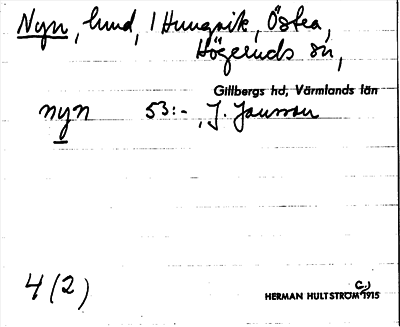 Nyn, hund, 1 Hungvik, Östra,
Högeruds sn,
Gillbergs hd, Värmlands län
nyn 53:-, J. Jansson
4(2)
HERMAN HULTSTRÖM 1915